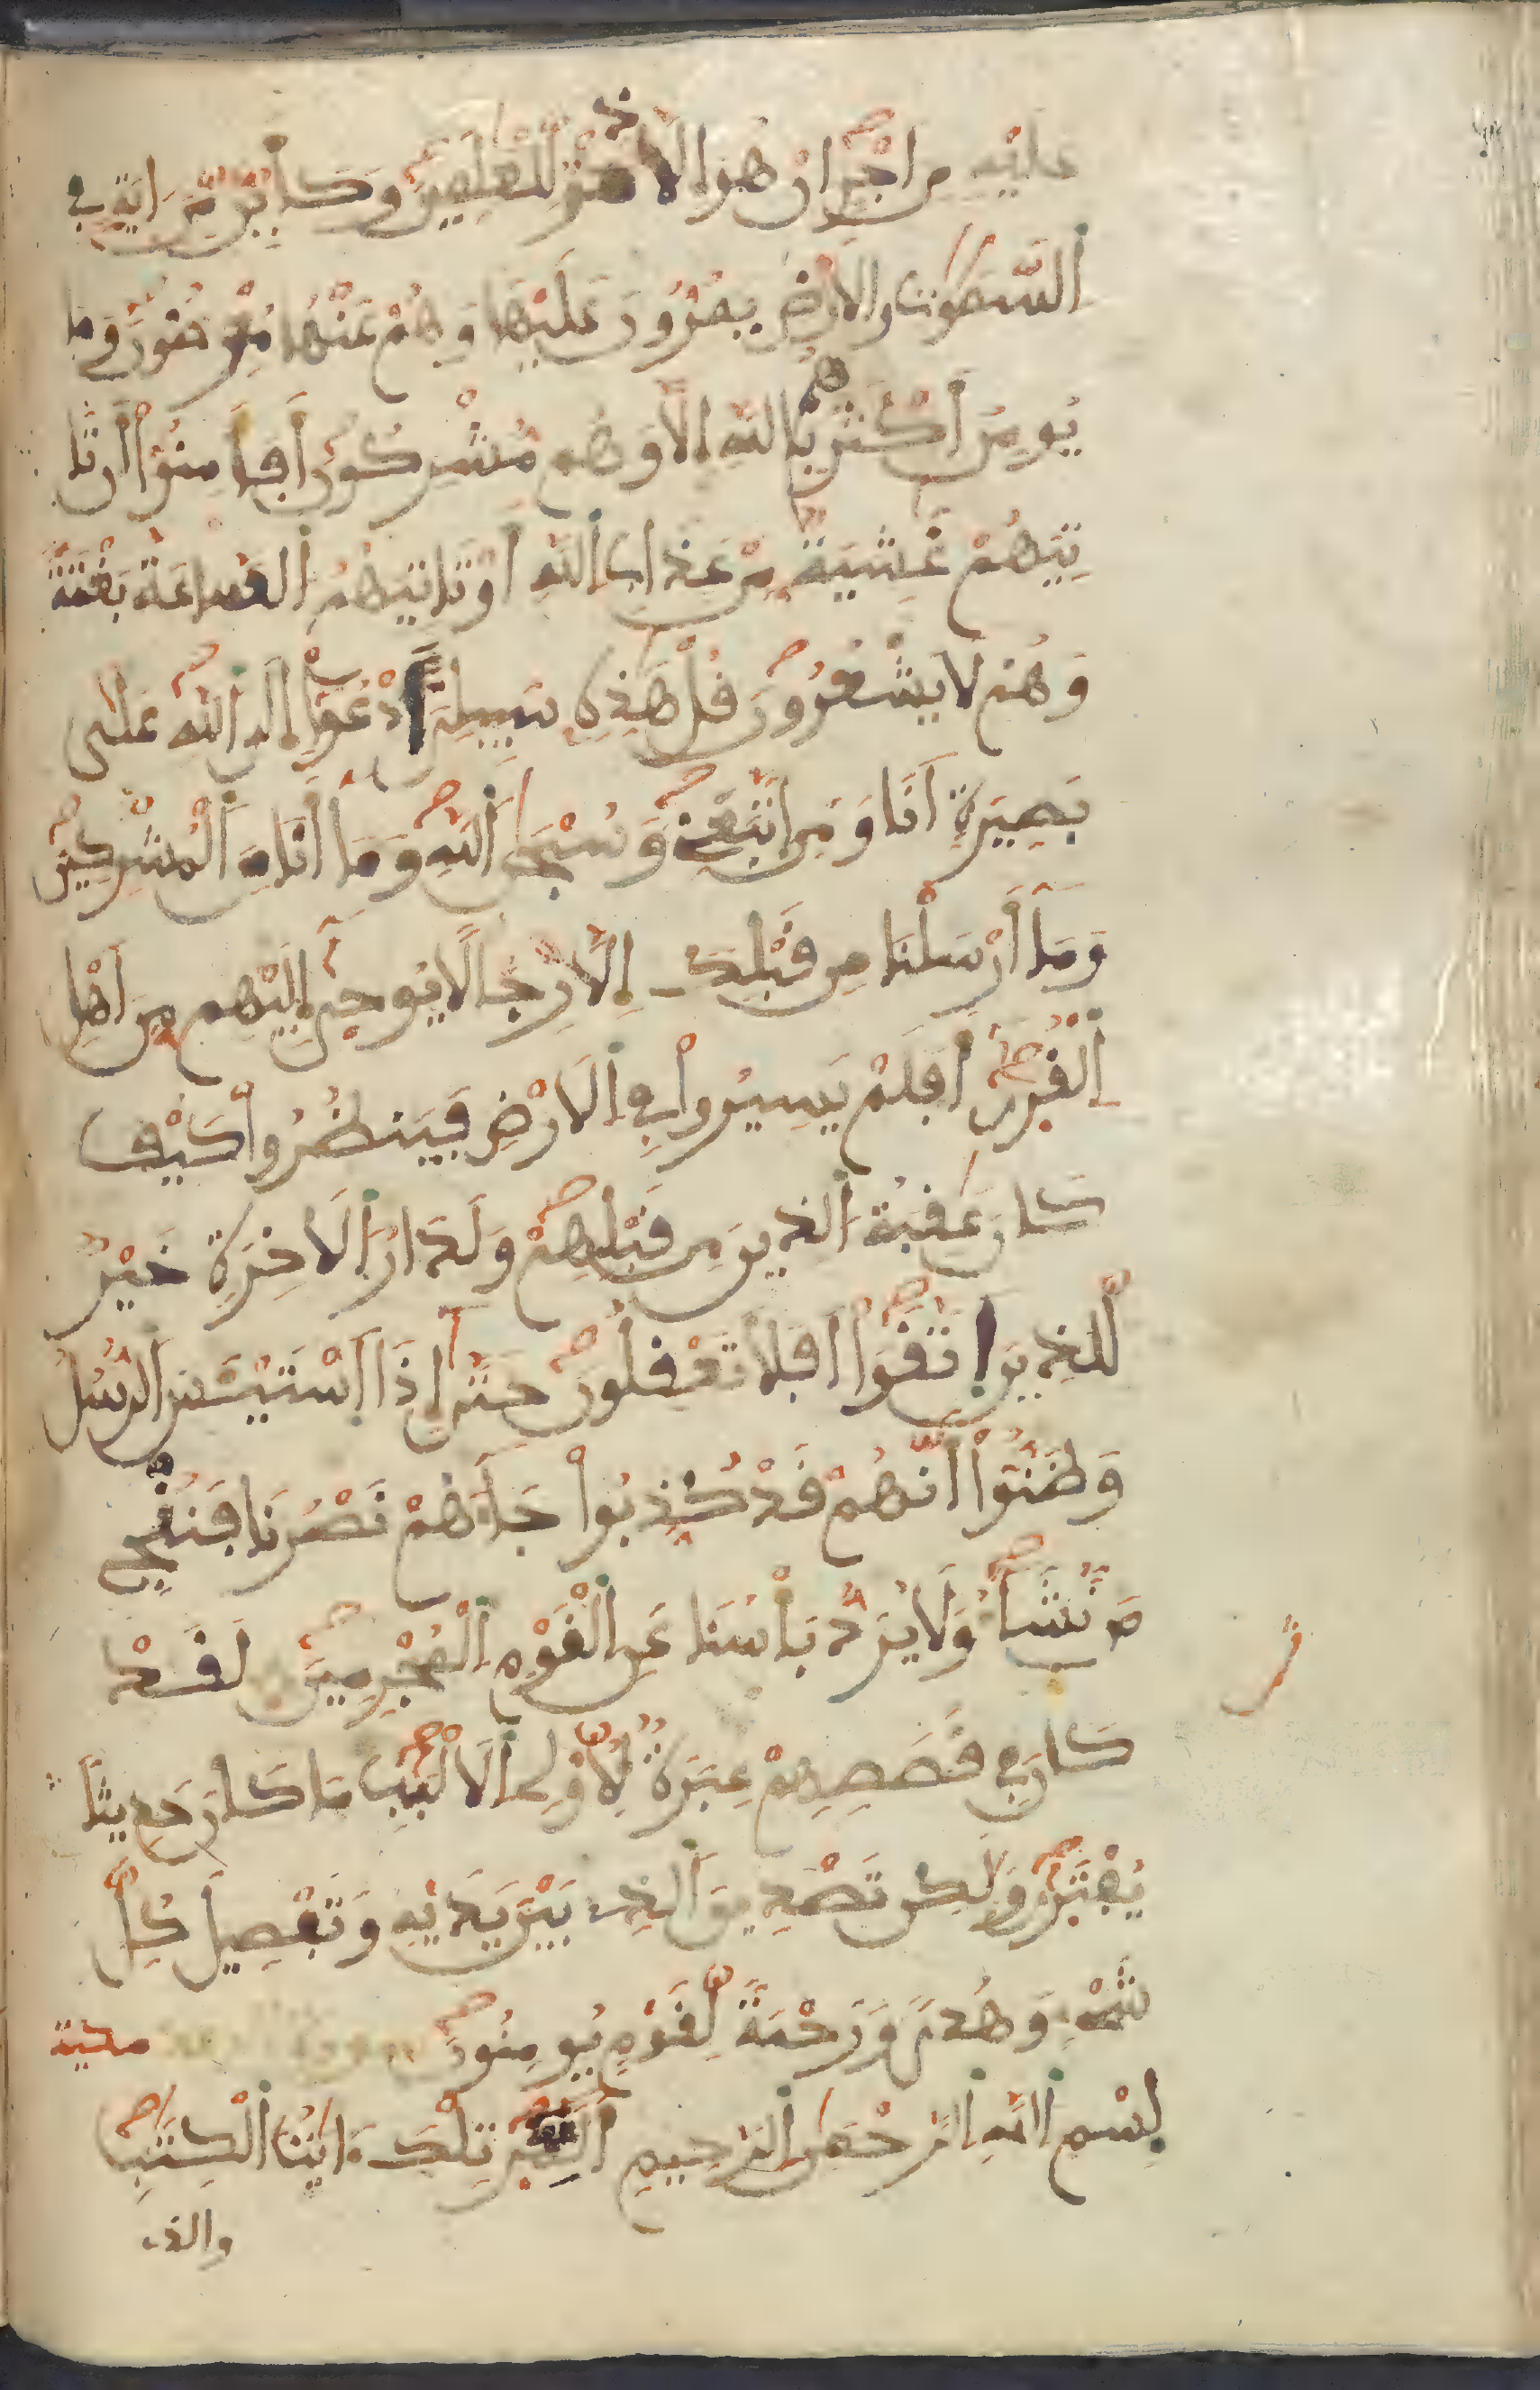 عَلَيْهِ مِنَ اَجْرٍ اِنْ هُوَ إِلَّا ذِكْرٌ لِّلْعَٰلَمِينَ وَكَأَيِّن مِّنَ اٰيَةٍ فِي
اَ۬لسَّمَٰوَٰتِ وَالَارْضِ يَمُرُّونَ عَلَيْهَا وَهُمْ عَنْهَا مُعْرِضُونَ وَمَا
يُومِنُ أَكْثَرُهُم بِاللَّهِ إِلَّا وَهُم مُّشْرِكُونَ أَفَأَمِنُوٓاْ أَن تَا
تِيَهُمْ غَٰشِيَةٌ مِّنْ عَذَابِ اِ۬للَّهِ أَوْ تَاتِيَهُمُ اُ۬لسَّاعَةُ بَغْتَةً
وَهُمْ لَا يَشْعُرُونَ قُلْ هَٰذِهِۦ سَبِيلِيَ أَدْعُوٓاْ إِلَى اَ۬للَّهِ عَلَىٰ
بَصِيرَةٍ اَنَا وَمَنِ اِ۪تَّبَعَنِي وَسُبْحَٰنَ اَ۬للَّهِ وَمَآ أَنَا مِنَ اَ۬لْمُشْرِكِينَ
وَمَآ أَرْسَلْنَا مِن قَبْلِكَ إِلَّا رِجَالًا يُوحَىٰٓ إِلَيْهِم مِّنَ اَهْلِ
اِ۬لْقُرَىٰٓ أَفَلَمْ يَسِيرُواْ فِي اِ۬لَارْضِ فَيَنظُرُواْ كَيْفَ
كَانَ عَٰقِبَةُ اُ۬لذِينَ مِن قَبْلِهِمْ وَلَدَارُ اُ۬لَاخِرَةِ خَيْرٌ
لِّلذِينَ اَ۪تَّقَوَاْ اَفَلَا تَعْقِلُونَ حَتَّىٰٓ إِذَا اَ۪سْتَيْـَٔسَ اَ۬لرُّسُلُ
وَظَنُّوٓاْ أَنَّهُمْ قَدْ كُذِّبُواْ جَآءَهُمْ نَصْرُنَا فَنُنجِي
مَن نَّشَآءُ وَلَا يُرَدُّ بَأْسُنَا عَنِ اِ۬لْقَوْمِ اِ۬لْمُجْرِمِينَ لَقَدْ
كَانَ فِي قَصَصِهِمْ عِبْرَةٌ لِّأُوْلِي اِ۬لَالْبَٰبِ مَا كَانَ حَدِيثًا
يُفْتَرَىٰ وَلَٰكِن تَصْدِيقَ اَ۬لذِي بَيْنَ يَدَيْهِ وَتَفْصِيلَ كُلِّ
شَيْءٍ وَهُدًى وَرَحْمَةً لِّقَوْمٍ يُومِنُونَ مدنية
بِسْمِ اِ۬للَّهِ اِ۬لرَّحْمَٰنِ اِ۬لرَّحِيمِ أَلَٓمِّٓرٰ تِلْكَ ءَايَٰتُ اُ۬لْكِتَٰبِ
والذي